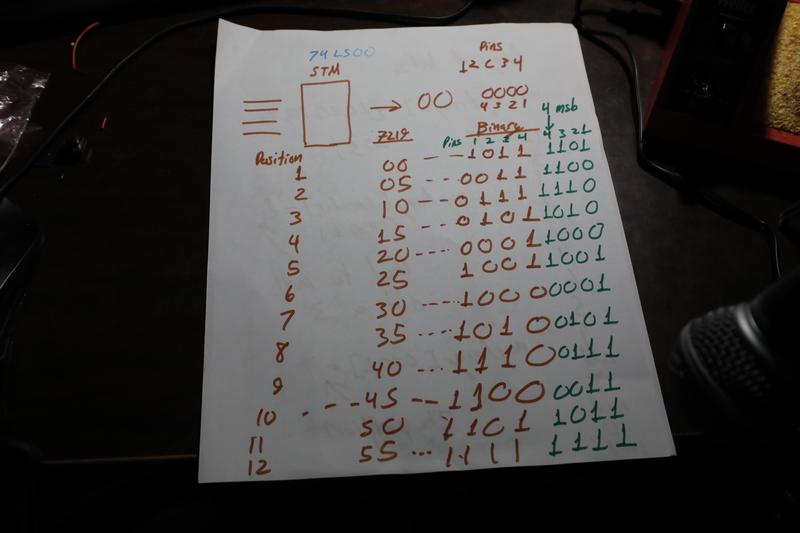 74LS00
STM
Pins
1 2 C 3 4
→ 00
0000
4 3 2 1
4 msb
7219
Binary
Position
Pins 1 2 3 4 4 3 2 1
1 00 --- 1011 1101
2 05 0011 1100
3 10 --- 0111 1110
4 15 0101 1010
5 20 --- 0001 1000
6 25 1001 1001
7 30 ---- 1000 0001
8 35 ---- 1010 0101
9 40 ... 1110 0111
10 - - - 45 -- 1100 0011
11 50 1101 1011
12 55 ... 1111 1111